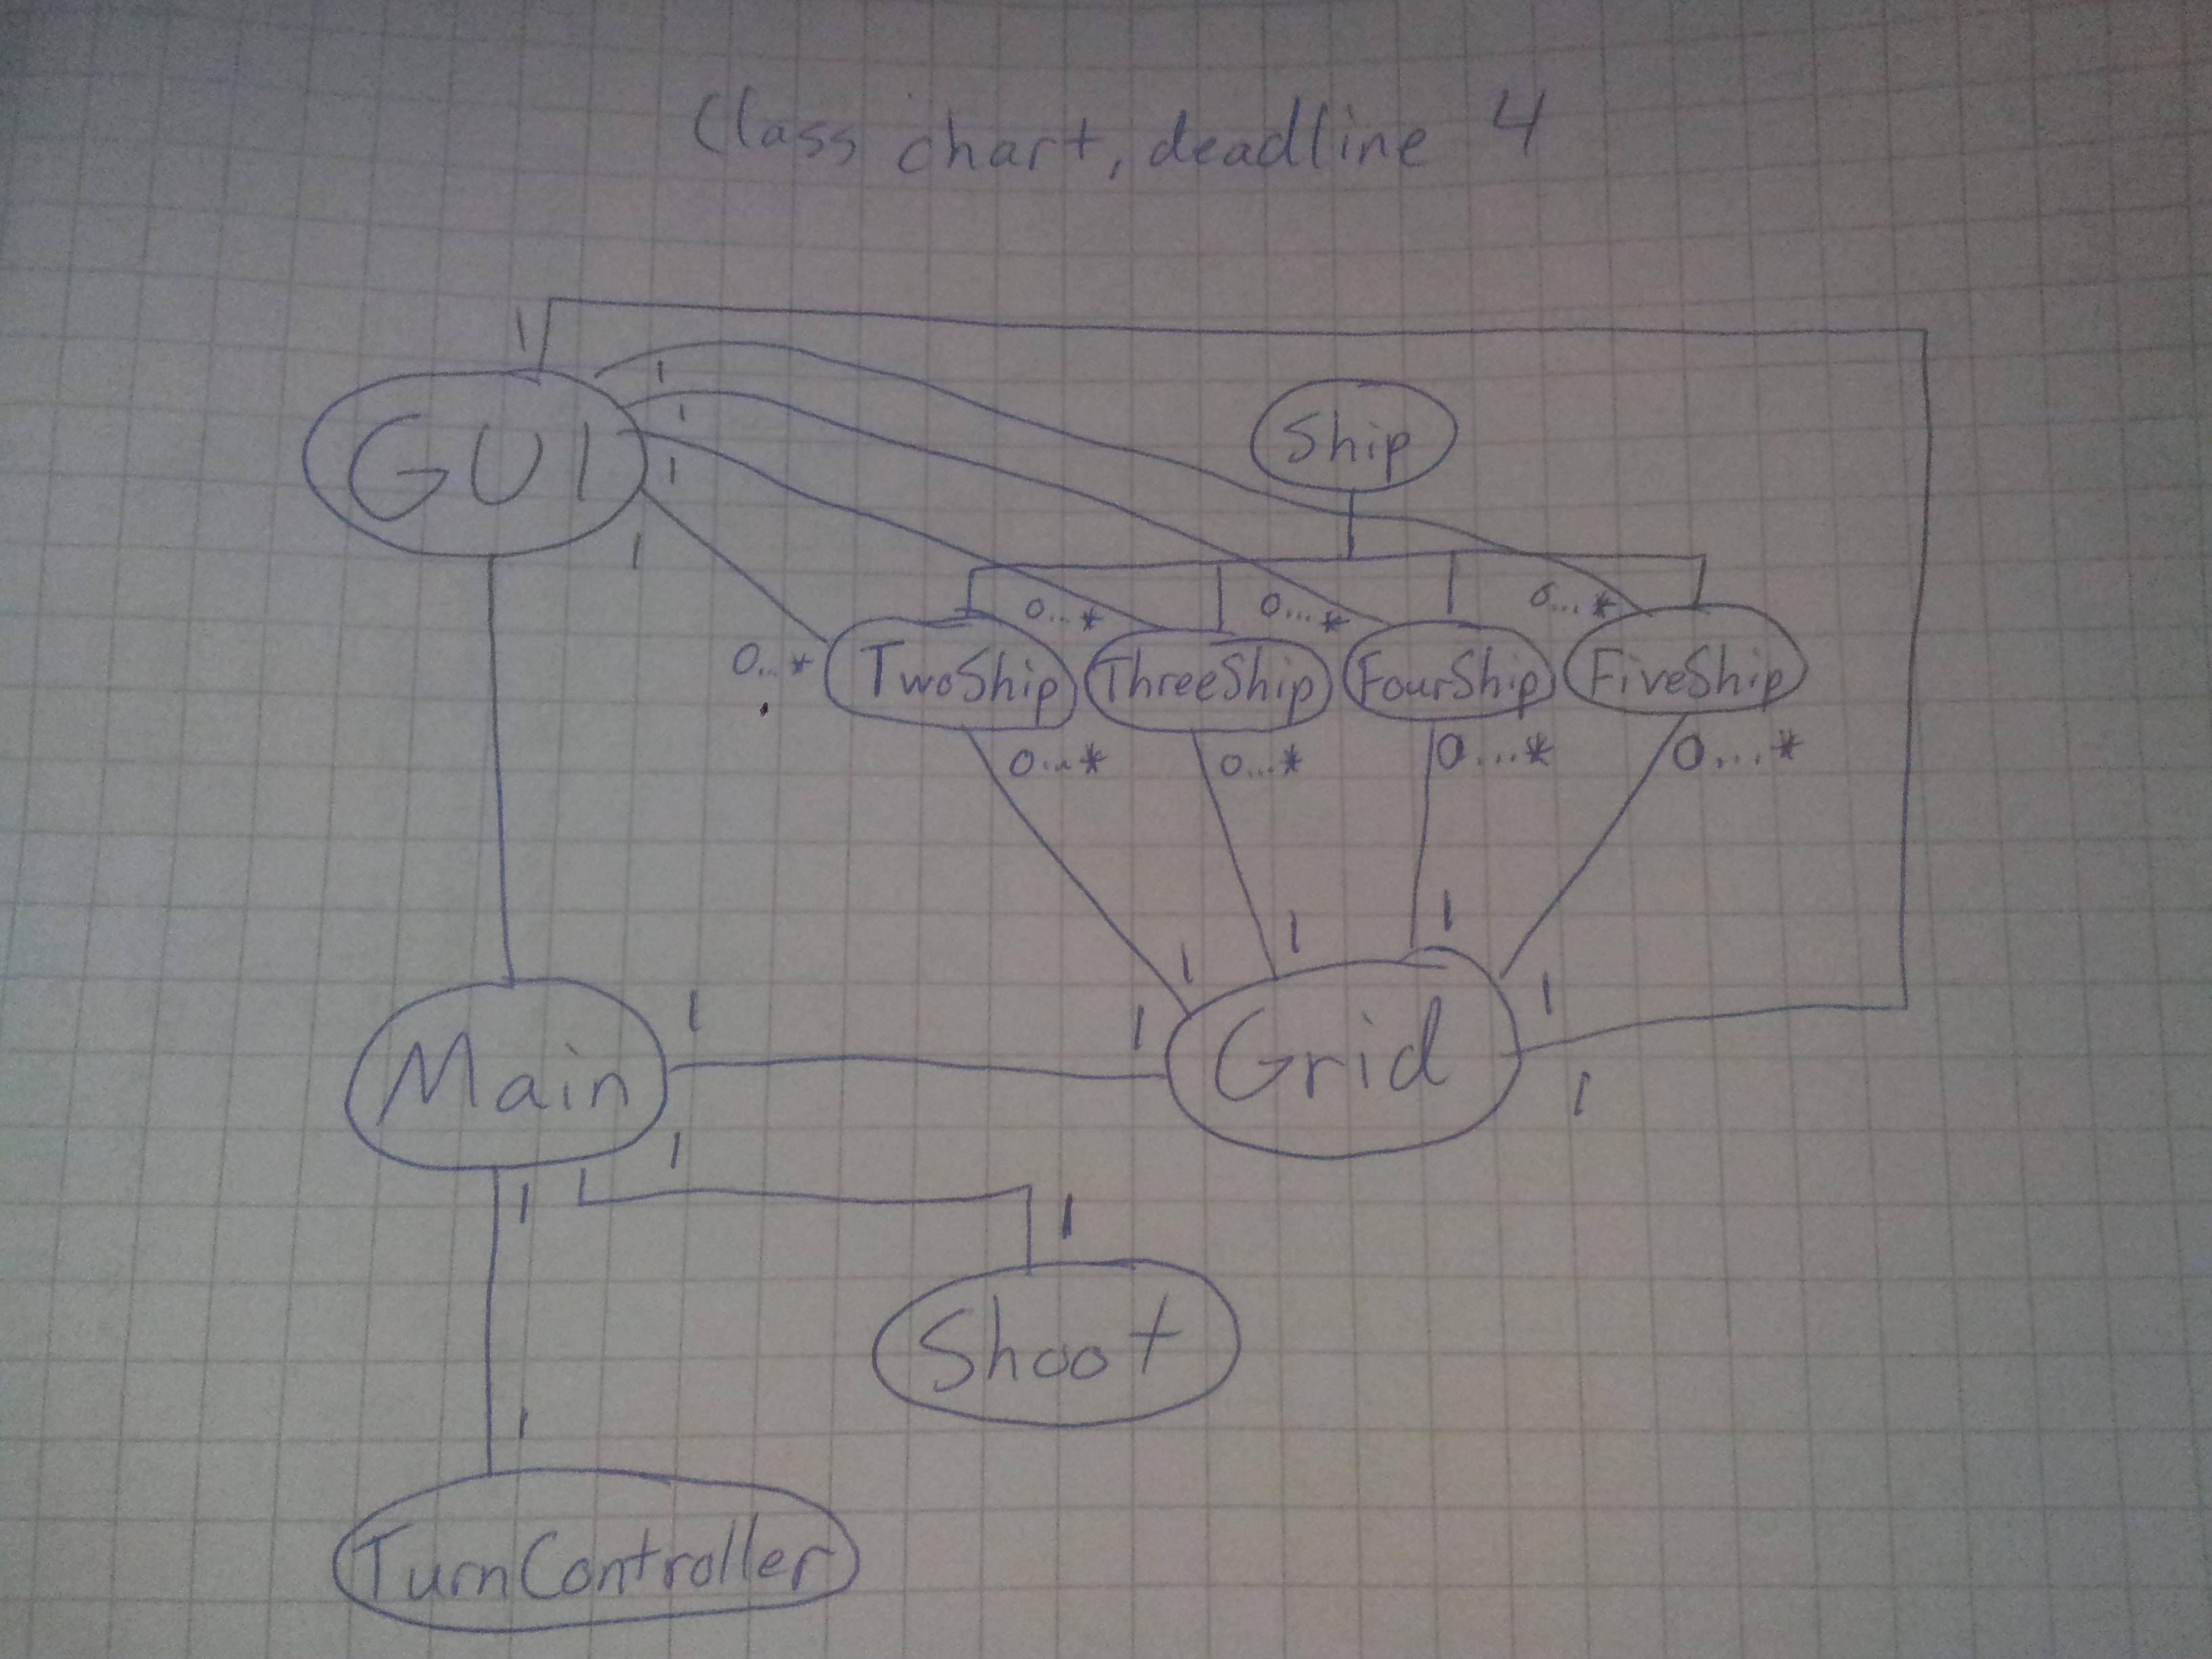 Class chart, deadline 4
1
1
GUI
1
1
Ship
1
0...*
0...*
0...*
0...*
TwoShip
ThreeShip
FourShip
FiveShip
0...*
0...*
0...*
0...*
1
1
1
1
1
1
Main
Grid
1
1
1
1
Shoot
1
TurnController